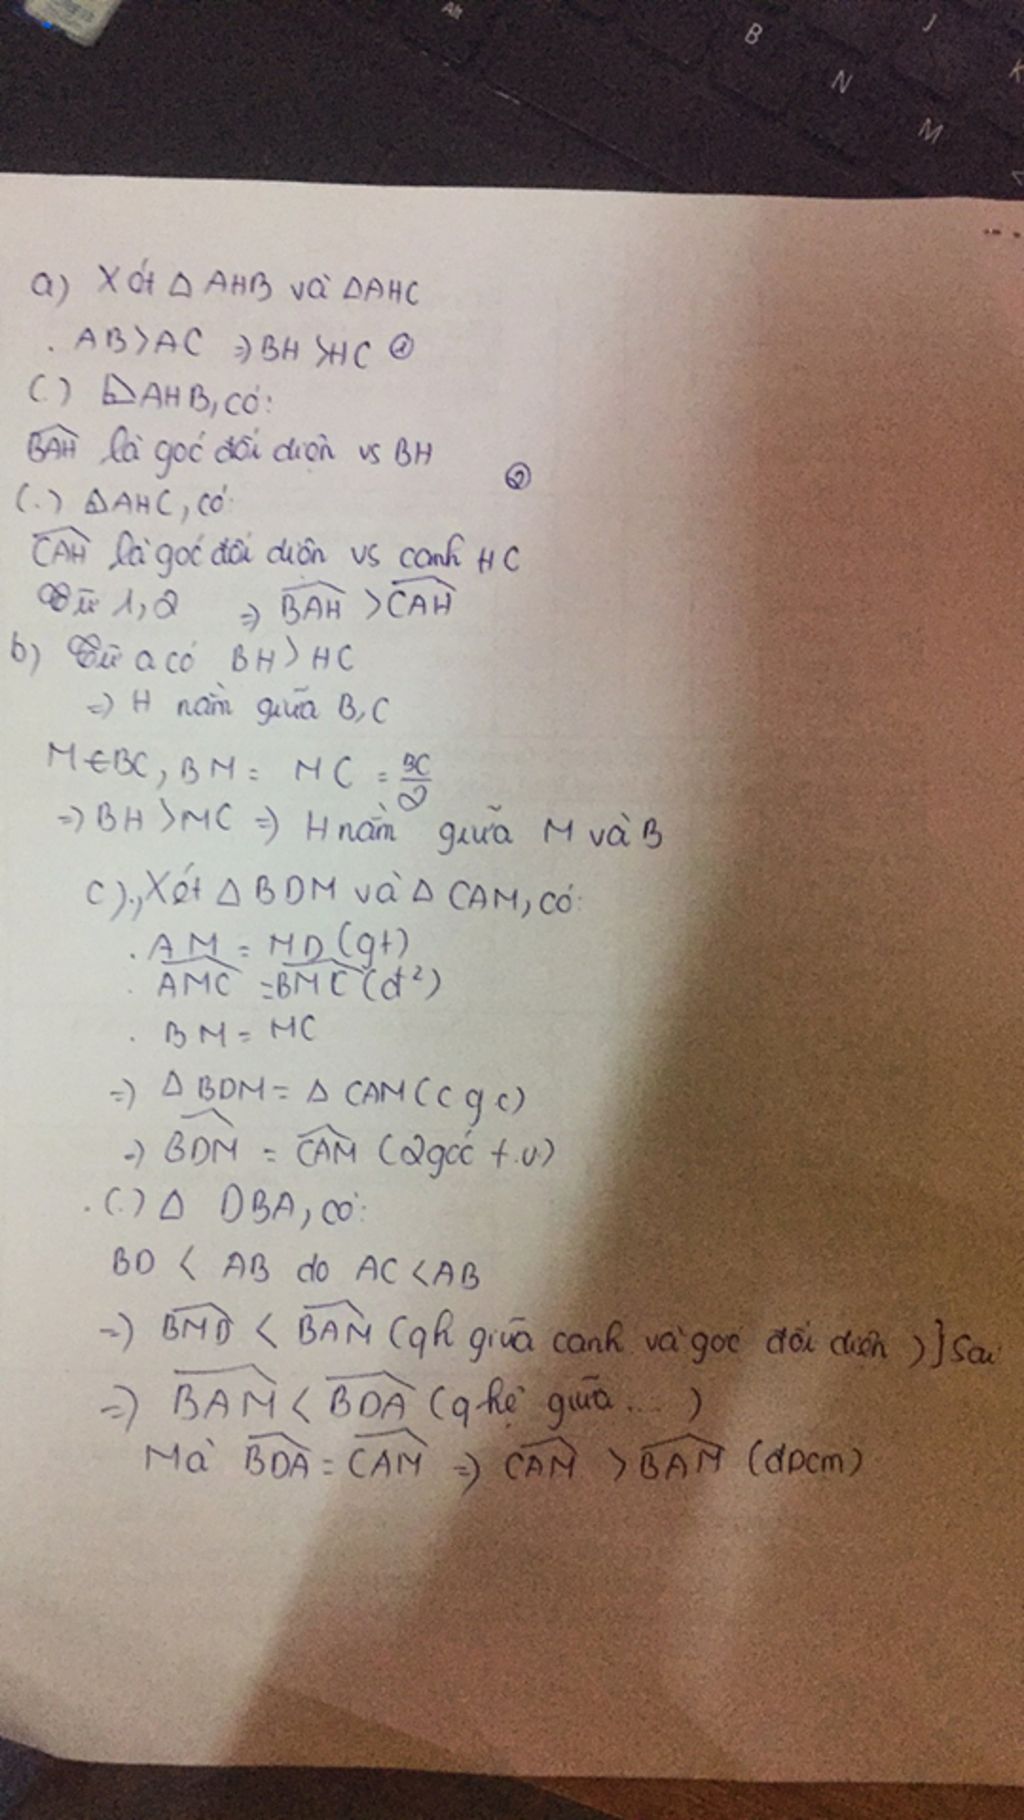 Alt
B
J
N
K
M
a) Xét △ AHB và △AHC
. AB>AC ⇒ BH >HC ①
(.) △AHB, có:
BAH là góc đối diện vs BH
②
(.) △AHC, có:
CAH là góc đối diện vs cạnh HC
Từ 1, 2 ⇒ BAH > CAH
b) Từ a có BH > HC
⇒ H nằm giữa B, C
M ∈ BC, BM = MC = BC/2
⇒ BH > MC ⇒ H nằm giữa M và B
c)., Xét △ BDM và △ CAM, có:
. AM = MD (gt)
. AMC = BMC (đ²)
. BM = MC
⇒ △ BDM = △ CAM (c g c)
⇒ BDM = CAM (2góc t.ư)
.(.) △ DBA, có:
BD < AB do AC < AB
⇒ BMD < BAM (qh giữa cạnh và góc đối diện )] Sai
⇒ BAM < BDA (q hệ giữa ... )
Mà BDA = CAM ⇒ CAM > BAM (đpcm)